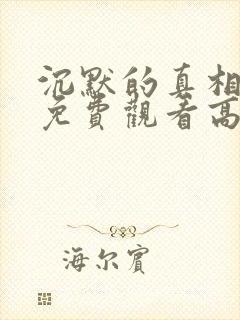 沉默的真相
免費觀看高
海尔賓